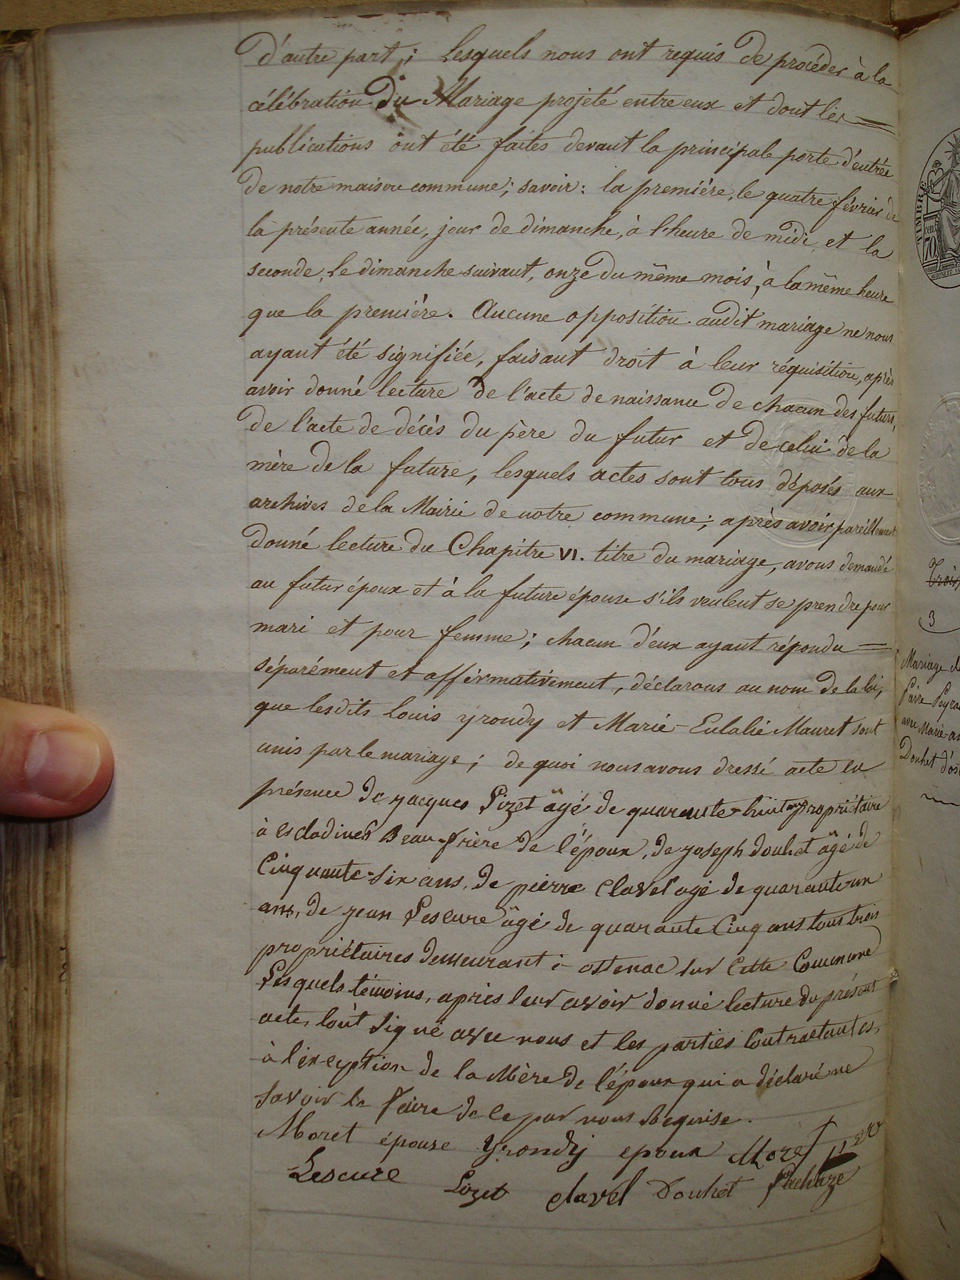 d'autre part; Lesquels nous ont requis de procéder à la
célébration du Mariage projeté entre eux et dont les
publications ont été faites devant la principale porte d'entrée
de notre maison commune; savoir: la première, le quatre février de
la présente année, jour de dimanche, à l'heure de midi et la
seconde, le dimanche suivant, onze du même mois, à la même heure
que la première. Aucune opposition audit mariage ne nous
ayant été signifiée, faisant droit à leur réquisition, après
avoir donné lecture de l'acte de naissance de chacun des futurs,
de l'acte de décès du père du futur et de celui de la
mère de la future, lesquels actes sont tous déposés aux
archives de la Mairie de notre commune; après avoir pareillement
donné lecture du Chapitre VI. titre du mariage, avons demandé
au futur époux et à la future épouse s'ils veulent se prendre pour
mari et pour femme; chacun d'eux ayant répondu
séparément et affirmativement, déclarons au nom de la loi,
que lesdits Louis yrondy et Marie-Eulalie Mauret sont
unis par le mariage; de quoi nous avons dressé acte en
présence de jacques Lizet âgé de quarante-huit ans propriétaire
à Beau-frère de l'époux, de joseph douhet âgé de
Cinquante-six ans, de pierre clavel agé de quarante un
ans, de jean Lescure âgé de quarante Cinq ans tous trois
propriétaires demeurant à ostenac sur Cette Commune
Lesquels témoins, après leur avoir donné lecture du présent
acte, l'ont signé avec nous et les parties Contractantes,
à l'exception de la Mère de l'époux qui a déclaré ne
savoir le faire de ce par nous Requise.
Moret épouse yrondy epoux Moret
Lescure Lizet clavel Douhet
TIMBRE
70
3
Mariage de
avec Marie
Douhet d'